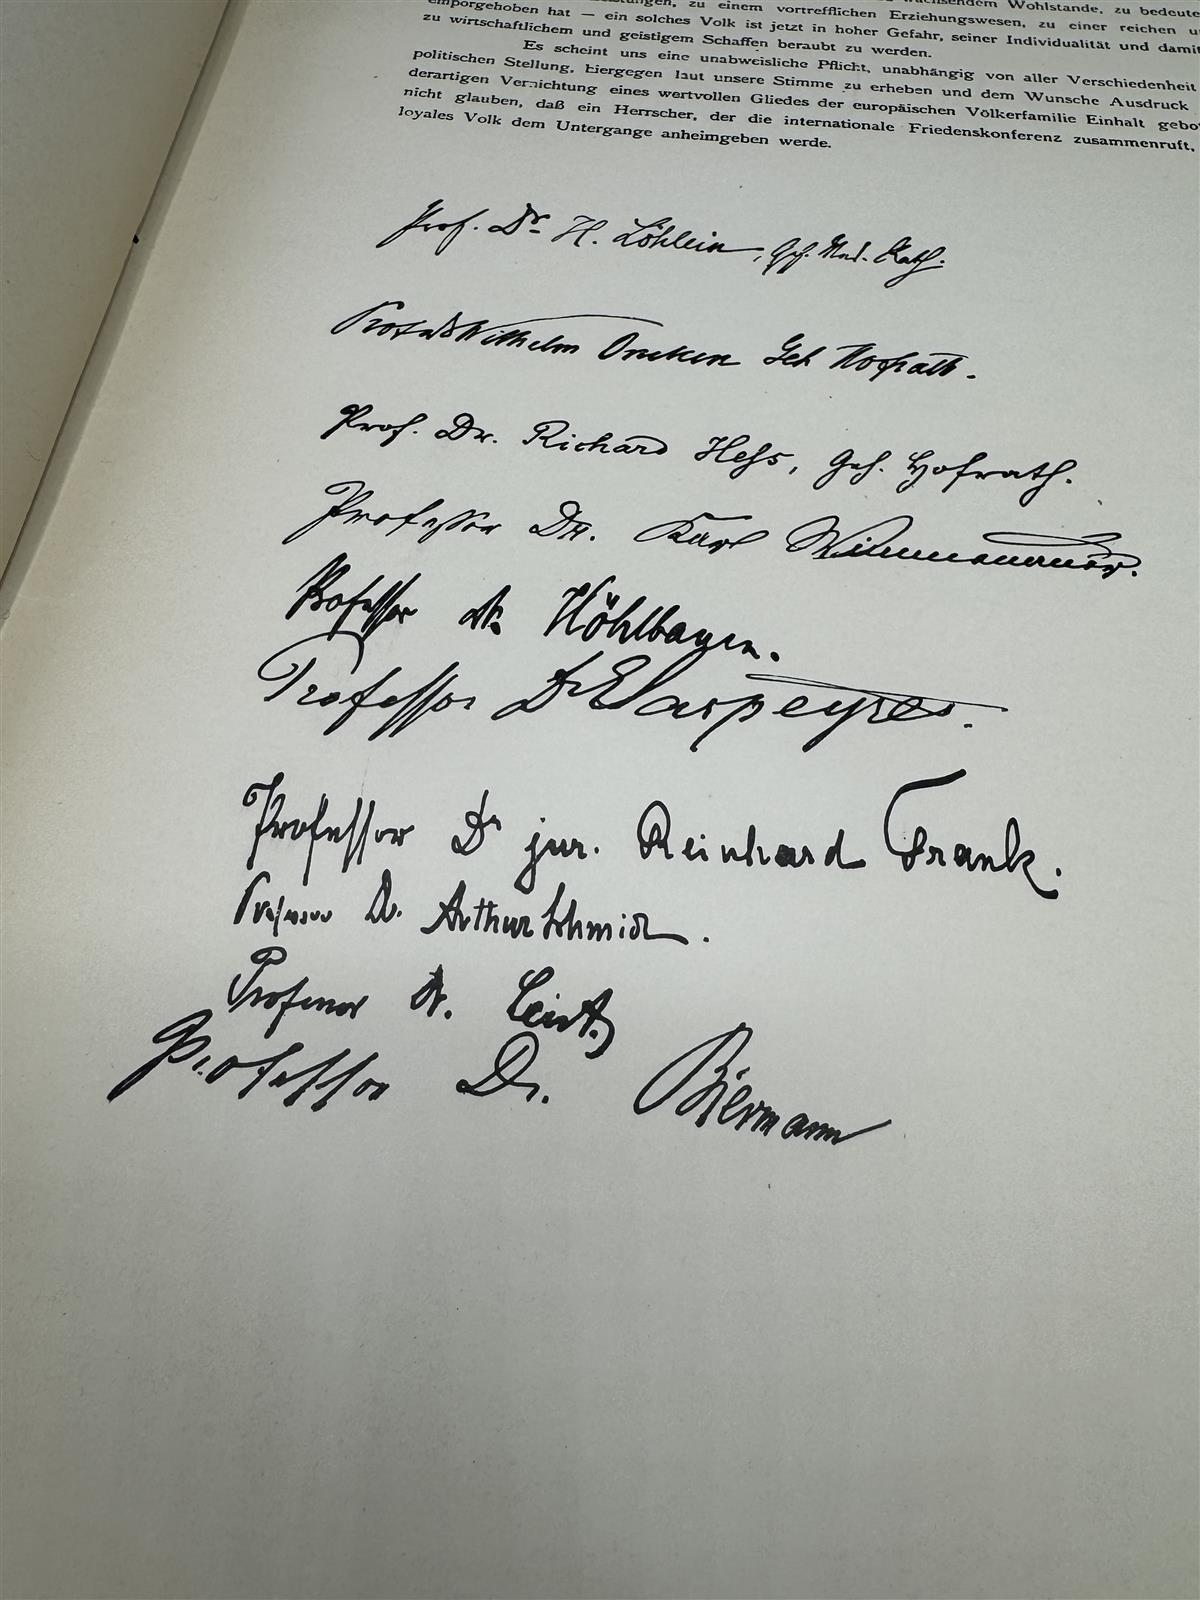 wachsendem Wohlstande, zu bedeute
emporgehoben hat — ein solches Volk ist jetzt in hoher Gefahr, seiner Individualität und damit
zu einem vortrefflichen Erziehungswesen, zu einer reichen u
zu wirtschaftlichem und geistigem Schaffen beraubt zu werden.
Es scheint uns eine unabweisliche Pflicht, unabhängig von aller Verschiedenheit
politischen Stellung, hiergegen laut unsere Stimme zu erheben und dem Wunsche Ausdruck
derartigen Vernichtung eines wertvollen Gliedes der europäischen Völkerfamilie Einhalt gebo
nicht glauben, daß ein Herrscher, der die internationale Friedenskonferenz zusammenruft,
loyales Volk dem Untergange anheimgeben werde.
Prof. Dr. H. Löhlein, Geh. Med. Rath.
Wilhelm Oncken Geh Hofrath.
Prof. Dr. Richard Hess, Geh. Hofrath.
Professor Dr. Karl Wimmenauer.
Professor Dr. Höhlbaum.
Professor Dr E Laspeyres.
Professor Dr jur. Reinhard Frank.
Professor Dr. Arthur Schmidt.
Professor Dr. Leist.
Professor Dr. Biermann